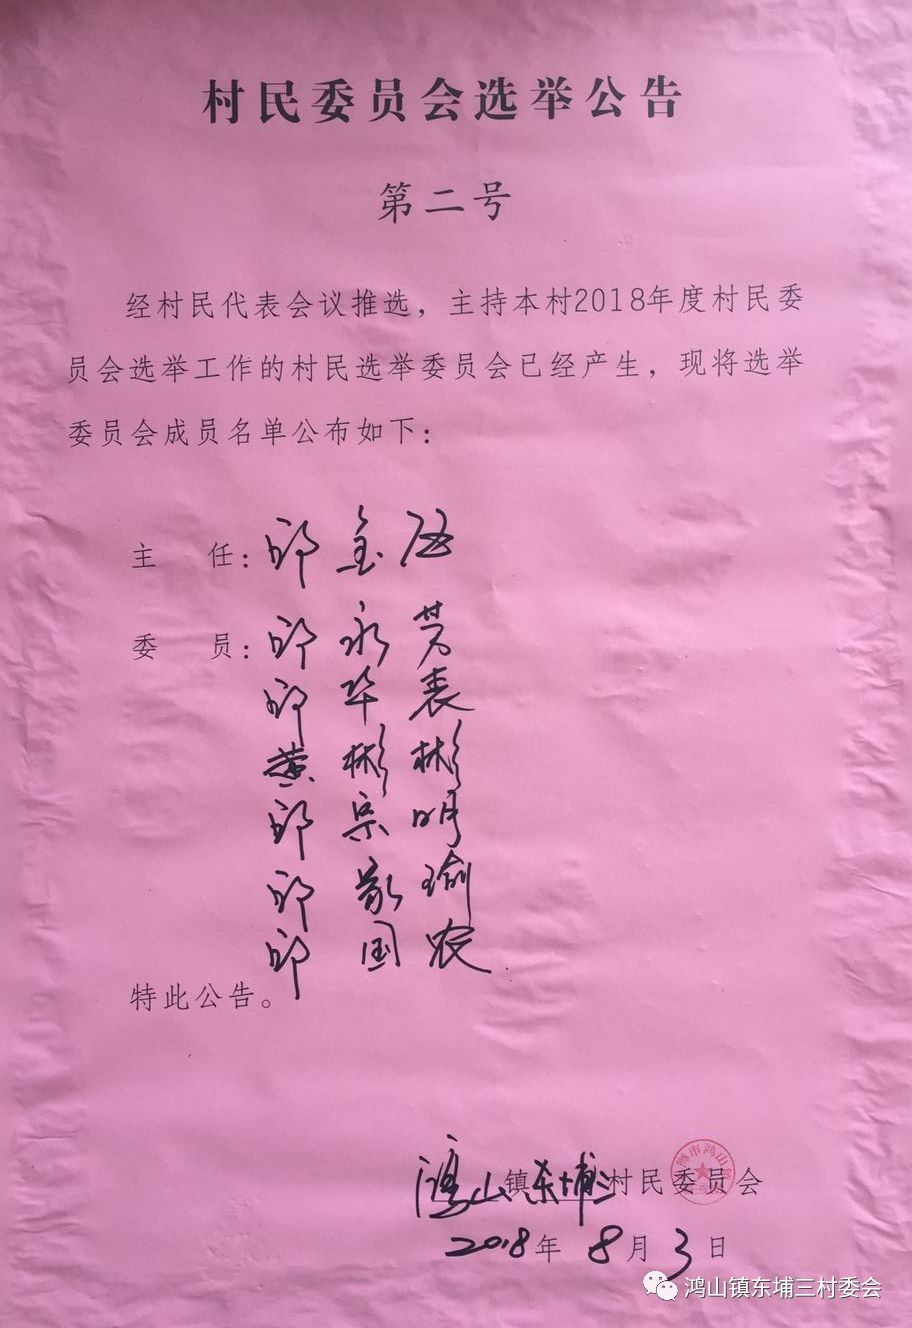 村民委员会选举公告
第二号
经村民代表会议推选，主持本村2018年度村民委
员会选举工作的村民选举委员会已经产生，现将选举
委员会成员名单公布如下：
主 任：邱金
委 员：邱永芳
邱华表
黄彬彬
邱宗明
邱瑜
邱国农
特此公告。
鸿山镇东埔三村民委员会
2018年8月3日
市鸿山
鸿山镇东埔三村委会